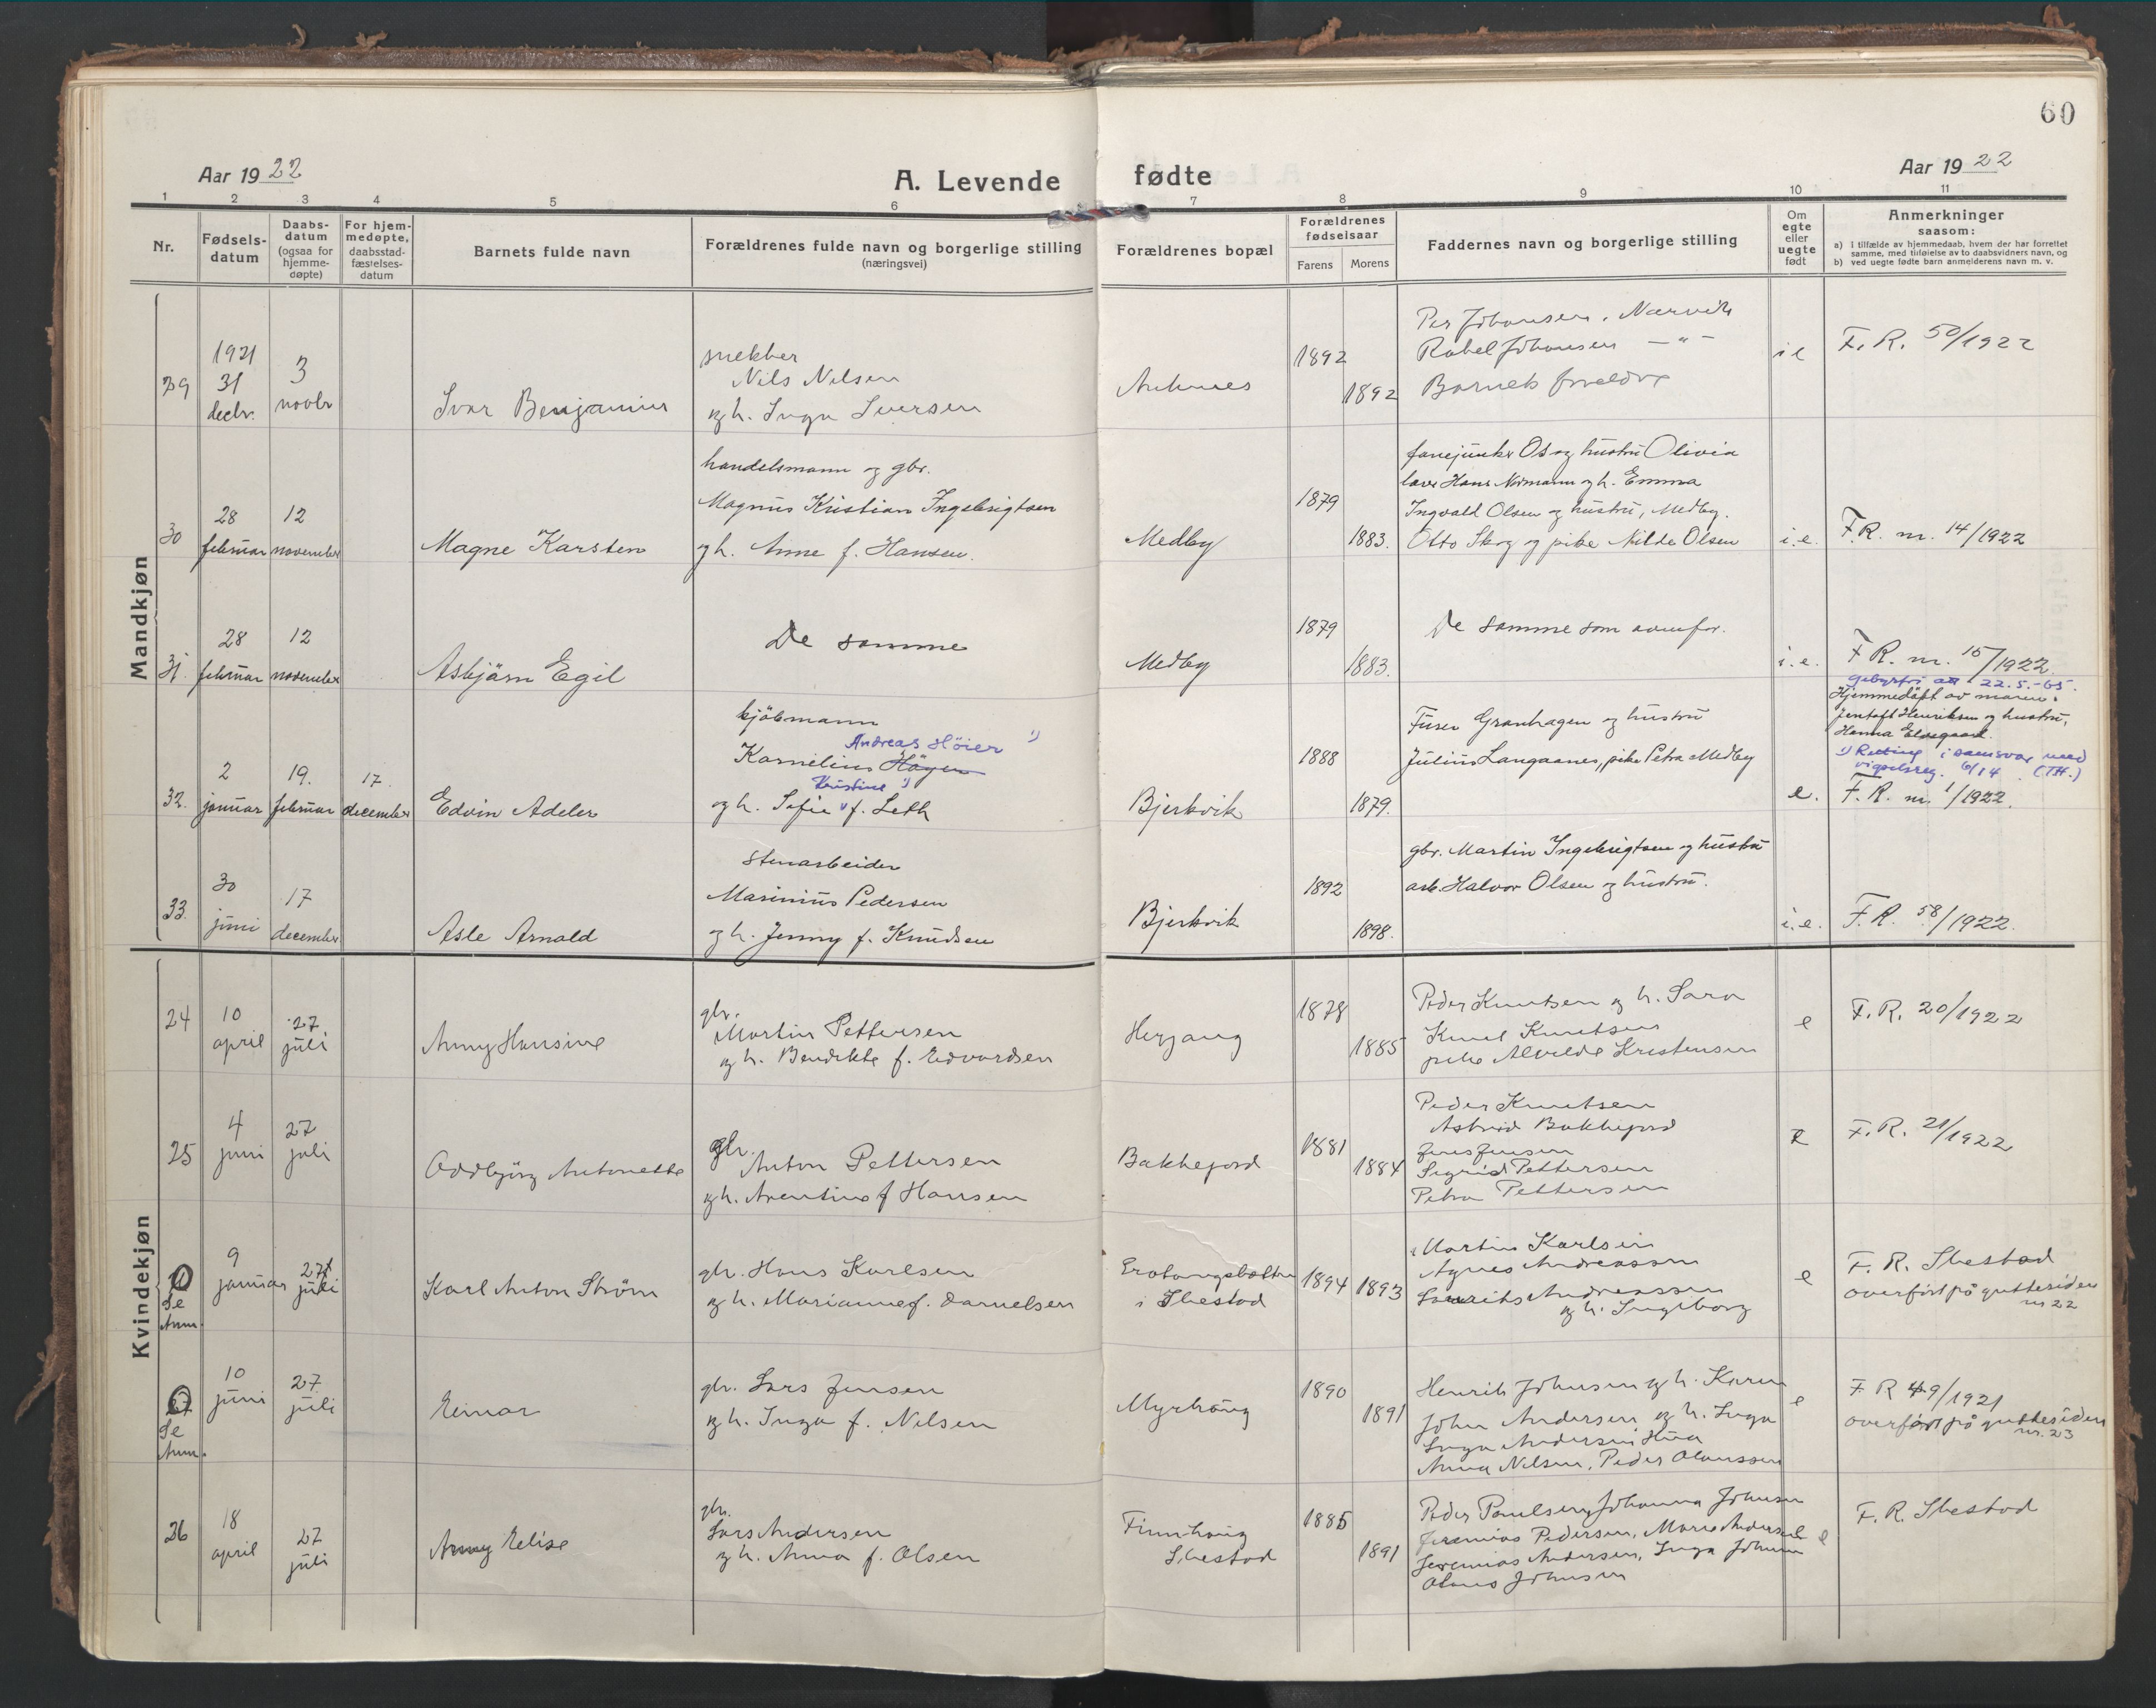 60
Aar 1922
A. Levende fødte
Aar 1922
1 2 3 4 5 6 7 8 9 10 11
Nr.
Fødsels-
datum
Daabs-
datum
(ogsaa for
hjemme-
døpte)
For hjem-
medøpte,
daabsstad-
fæstelses-
datum
Barnets fulde navn
Forældrenes fulde navn og borgerlige stilling
(næringsvei)
Forældrenes bopæl
Forældrenes
fødselsaar
Farens Morens
Faddernes navn og borgerlige stilling
Om
egte
eller
uegte
født
Anmerkninger
saasom:
a) i tilfælde av hjemmedaab, hvem der har forrettet
samme, med tilføielse av to daabsvidners navn, og
b) ved uegte fødte barn anmelderens navn m. v.
Mandkjøn
29
1921
31
decbr.
3
novbr
Ivar Benjamin
snekker
Nils Nilsen
og h. Inga Iversen
1892
1892
Per Johansen, Narvik
Rakel Johansen — " —
Barnets foreldre
i e
F. R. 50/1922
30
28
februar
12
november
Magne Karsten
handelsmann og gbr.
Magnus Kristian Ingebrigtsen
og h. Anne f. Hansen.
Medby
1879
1883.
fanejunker Os og hustru Olivia
Hans Normann og h. Emma
Ingvald Olsen og hustru, Medby.
Otto Skog og pike Hilda Olsen
i. e.
F.R. nr. 14/1922
31
28
februar
12
november
Asbjørn Egil
De samme
Medby
1879
1883.
De samme som ovenfor.
i. e.
F R. nr. 15/1922.
Gebyrfri att 22.5.-65.
32.
2
januar
19.
februar
17.
december
Edvin Adeler
kjöbmann
Andreas Höier 1)
Kornelius Höyer
Kristine 1)
og h. Sofie f. Leth
Bjerkvik
1888
1879.
Fuser Granhagen og hustru
Julius Langaanes, pike Petra Medby
e.
Hjemmedöpt av moren.
Jentoft Henriksen og hustru,
Hanna Eldegaard.
1) Retting i samsvar med
vigselsreg. 6/14 (TH.)
F. R. nr. 1/1922.
33.
30
juni
17
december
Asle Arnold
Stenarbeider
Marinius Pedersen
og h. Jenny f. Knudsen
Bjerkvik
1892
1898.
gbr. Martin Ingebrigtsen og hustru
arb. Halvor Olsen og hustru.
i. e.
F. R. 58/1922.
Kvindekjøn
24
10
april
27
juli
Anny Hansine
gbr.
Martin Pettersen
og h. Bendikte f. Edvardsen
Herjang
1878
1885
Peder Knutsen og h. Sara
Knut Knutsen
pike Alvilde Kristensen
e
F. R. 20/1922
25
4
juni
27
juli
Oddbjörg Antonette
gbr.
Anton Pettersen
og h. Arentine f Hansen
Bakkejord
1881
1884
Peder Knutsen
Astrid Bakkejord
Jens Jensen
Sigrid Pettersen
Petra Pettersen
e
F. R. 21/1922
Se
Anm.
9
januar
27
juli
Karl Anton Strøm
gbr. Hans Karlsen
og h. Marianne f. Danielsen
i Ibestad
1894 1893
Martin Karlsen
Agnes Andreassen
Lauritz Andreassen
og h. Ingeborg
e
F. R. Ibestad
overfört på guttesiden
nr 22
Se
Anm.
10
juni
27
juli
Einar
gbr. Lars Jensen
og h. Inga f. Nilsen
Myrhaug
1890
1891
Henrik Johnsen og h. Karen
John Andersen og h. Inga
Inga Andersen
Anna Nilsen, Peder Olaussen
e
F R 49/1921
overfört på guttesiden
nr. 23
26
18
april
27
juli
Anny Elise
gbr.
Lars Andersen
og h. Anna f. Olsen
Finnhaug
Ibestad
1885
1891
Peder Paulsen, Johanna Johnsen
Jeremias Pedersen, Marie Andersen
Jeremias Andersen, Inga Johnsen
Olaus Johnsen
e
F. R. Ibestad